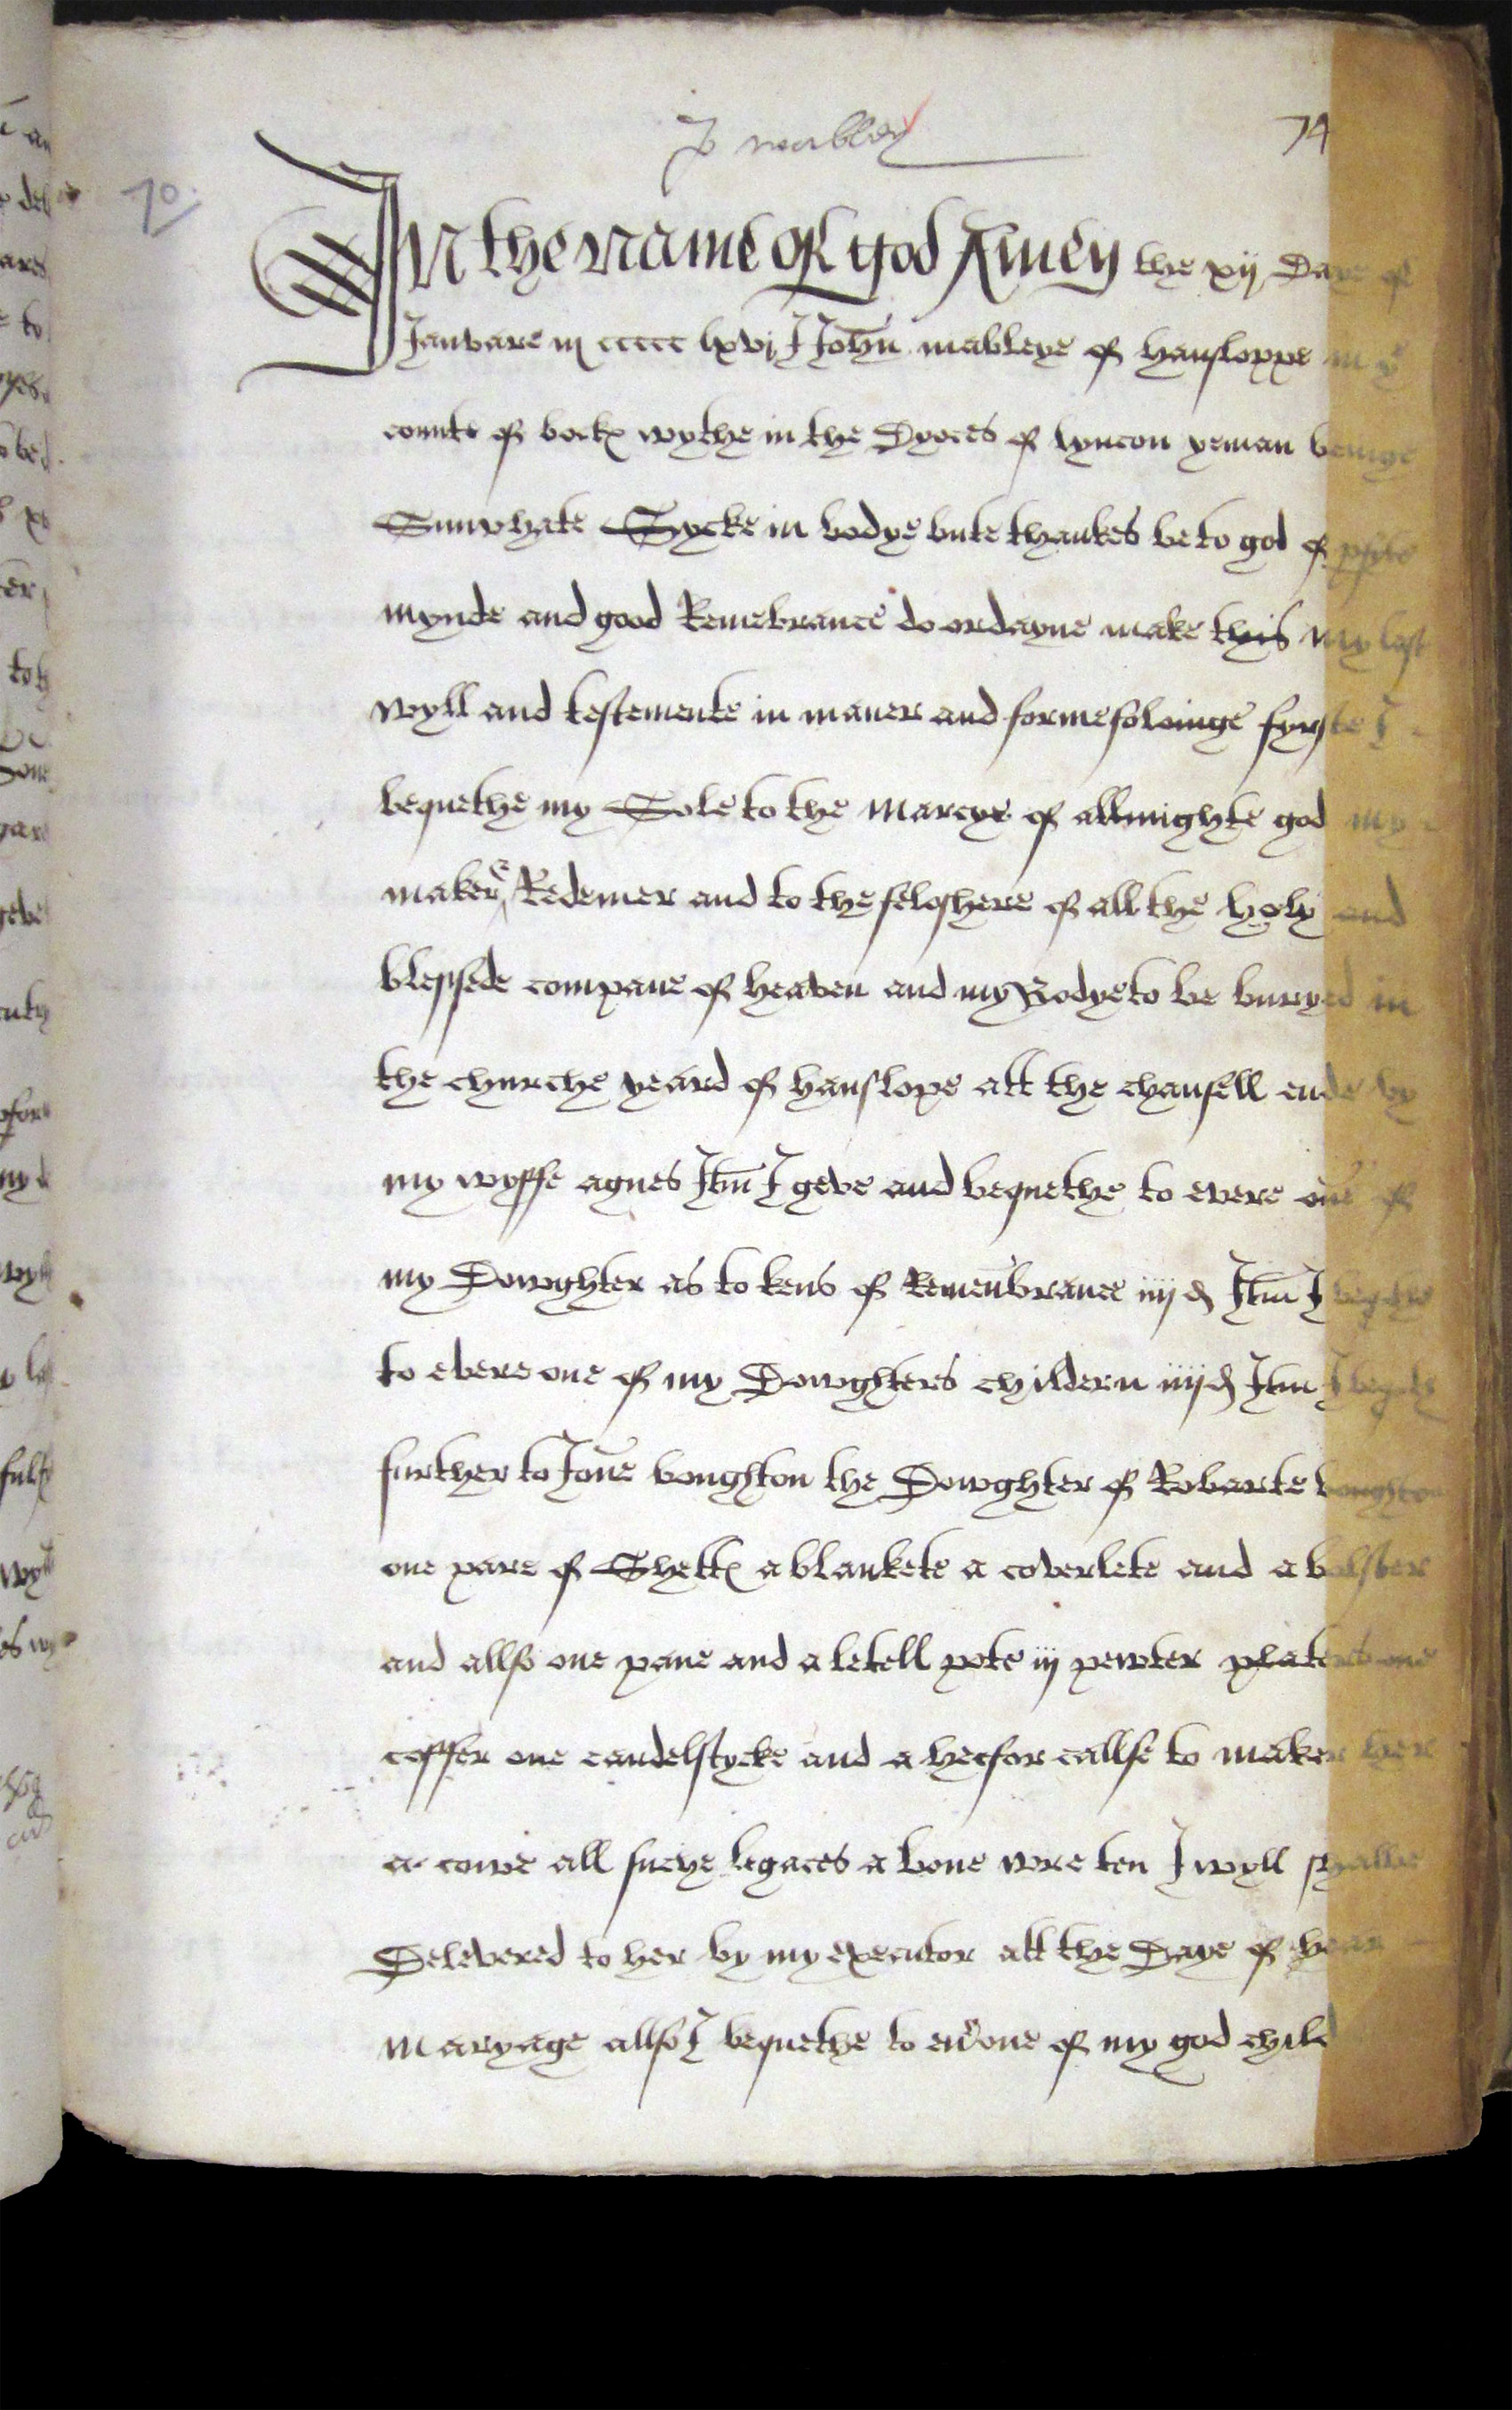 Jo mabley
74
70
In the name of god Amen the xij Daye of
Januare m ccccc lxvj I John mableye of hansloppe in ye
counte of bock wythe in the Dyoces of lyncon yeman beinge
Sumwhate Sycke in bodye bute thankes be to god of pfyte
mynde and good Remebrance do ordayne make this my last
wyll and testemente in maner and forme foloinge fyrste I
bequethe my Sole to the marcye of allmighte god my
maker & Redemer and to the feloshepe of all the holy and
blessede compane of heaven and my Bodye to be buryed in
the churche yeard of hanslope att the chansell ende by
my wyffe agnes Itm I geve and bequethe to evere one of
my Dowghter as to kens of Remenbrance iiij d Itm I beqthe
to evere one of my Dowghters childern iiij d Itm I beqth
further to Jone boughton the Dowghter of Robarte boughton
one pare of Shett a blankete a coverlete and a bolster
and allso one pane and a letell pote iij pewter platers one
coffer one candelstycke and a hecfor callfe to maker her
a cowe all suche legaces a bove wre ten I wyll shalbe
Delevered to her by my executor att the Daye of her
maryage allso I bequethe to eũone of my god child